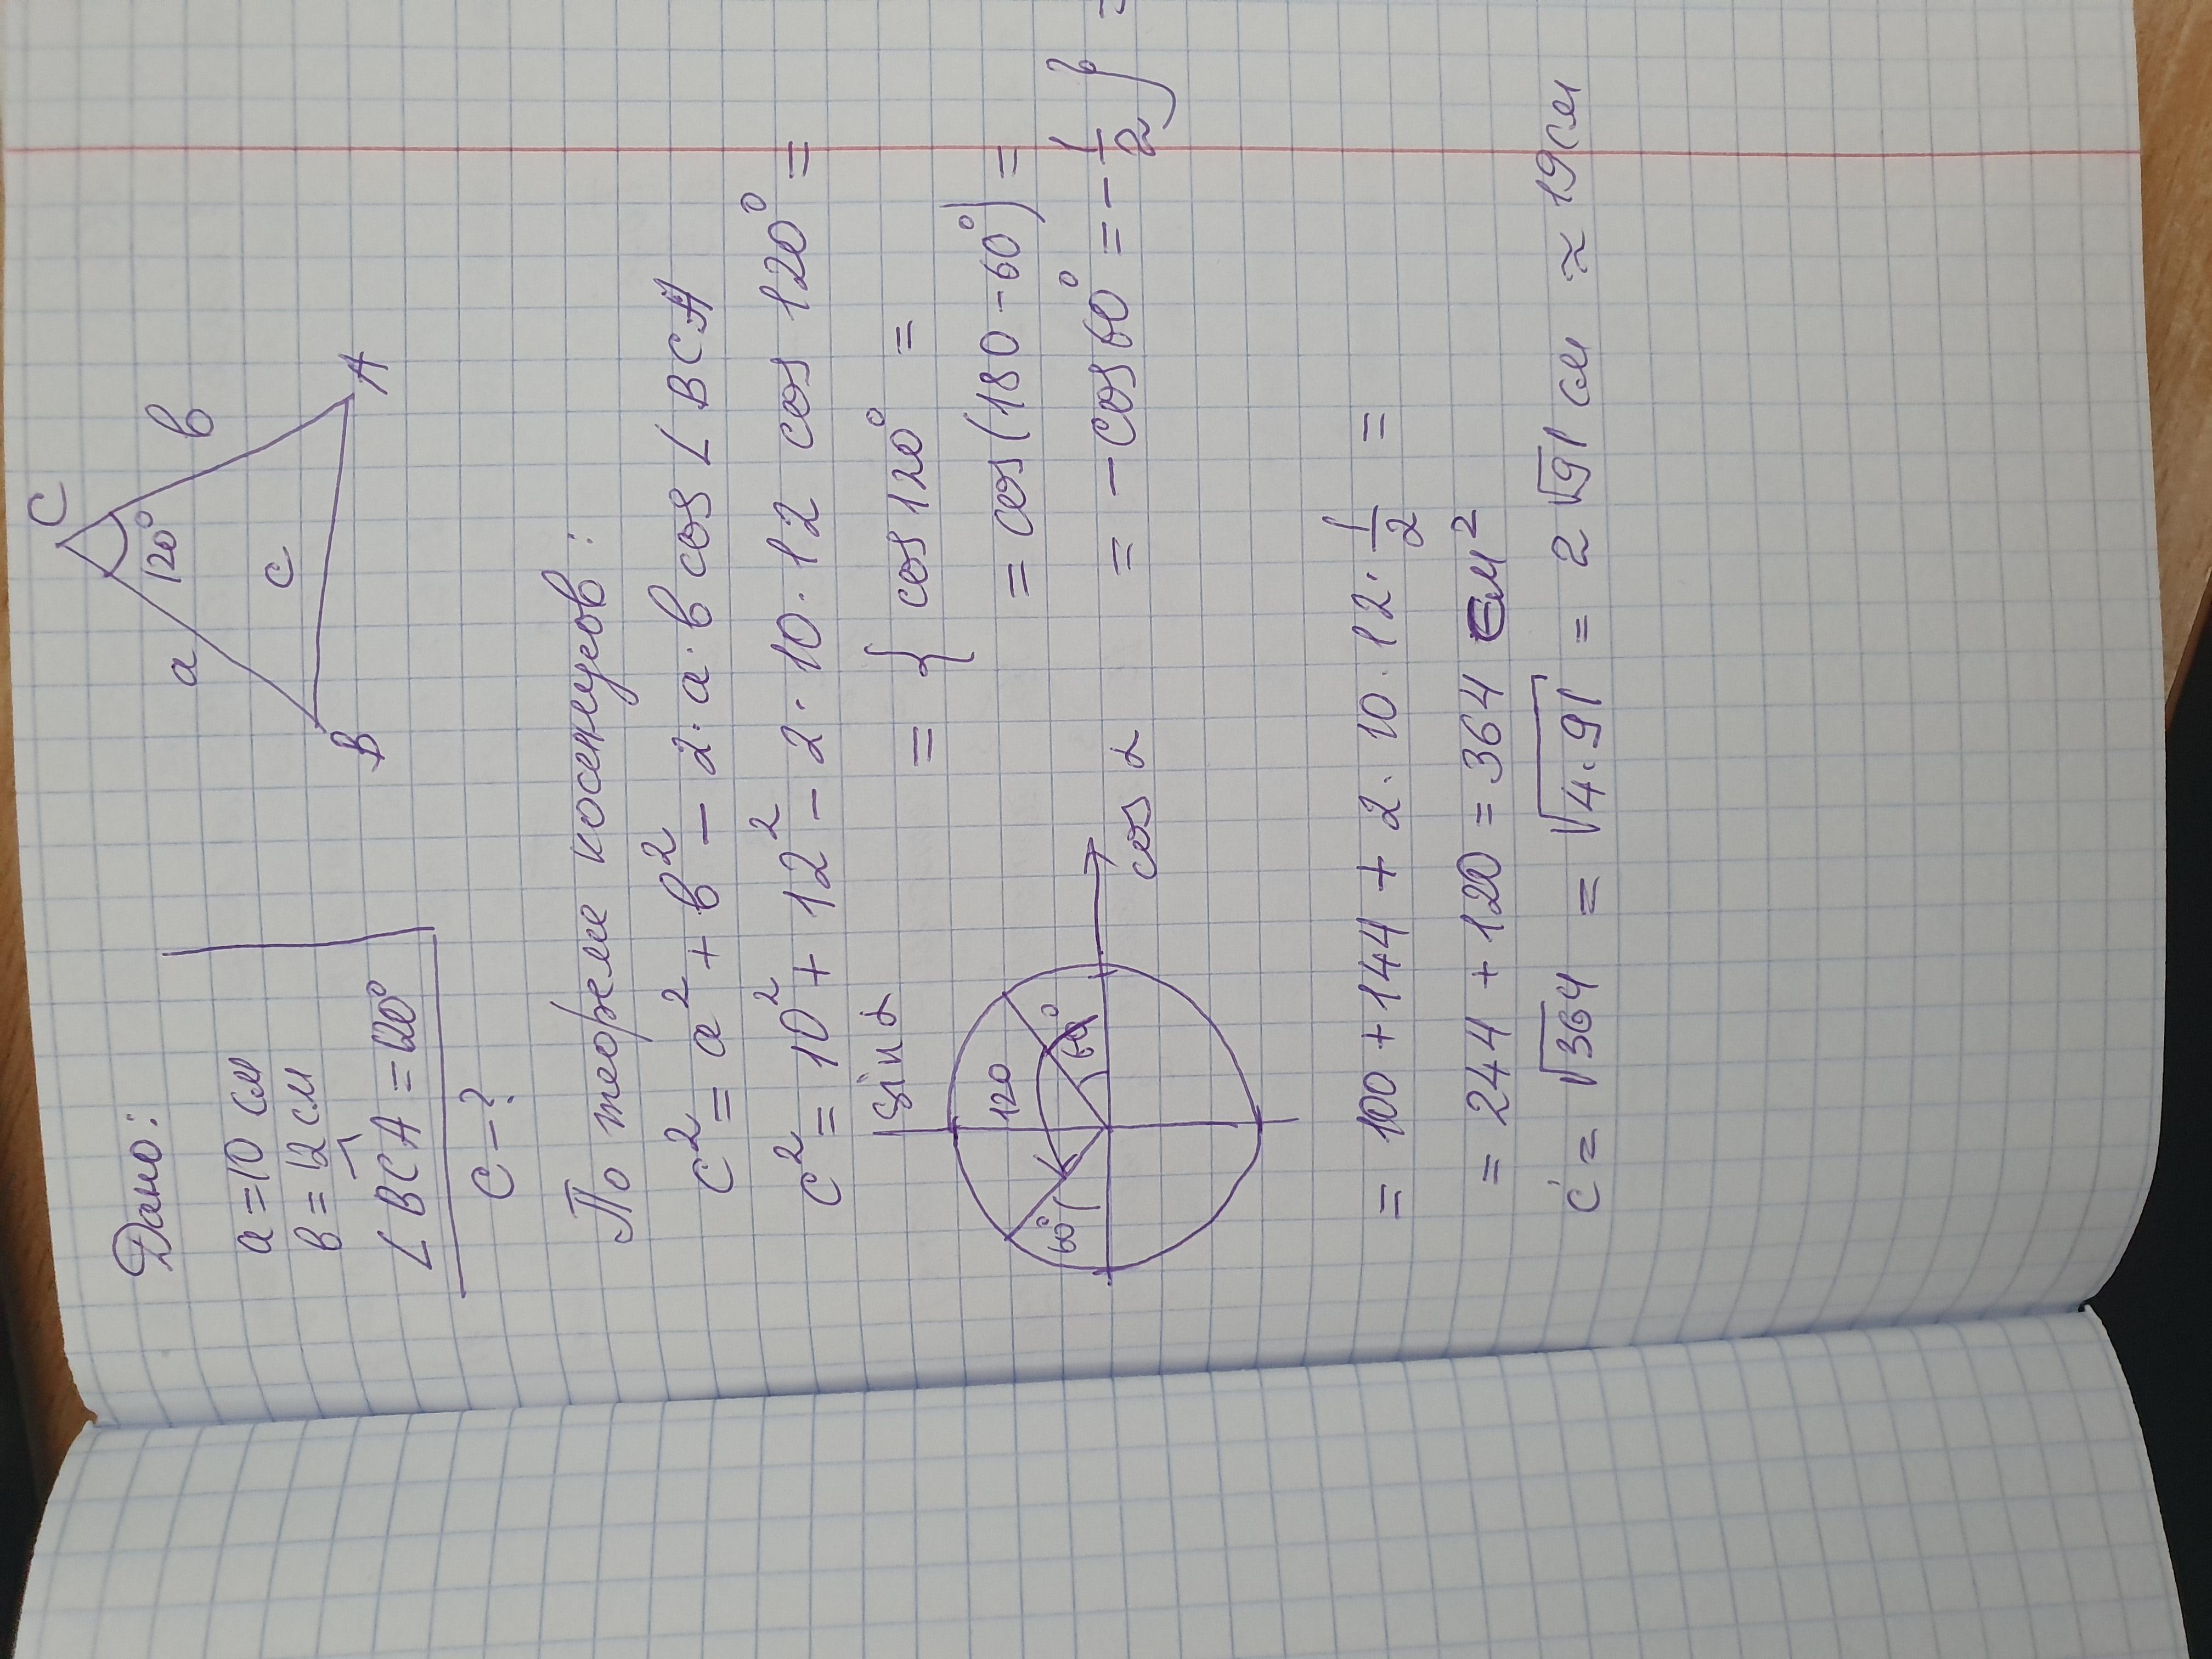 Дано:
a = 10 см
в = 12 см
∠ BCA = 120°
c - ?
C
a
120°
в
c
B
A
По теореме косенусов:
c² = a² + в² - 2 · a · в cos ∠ BCA
c² = 10² + 12² - 2 · 10 · 12 cos 120° =
= { cos 120° =
= cos (180 - 60°) =
= - cos 60° = - 1/2 } =
sin α
120
60°
60°
cos α
= 100 + 144 + 2 · 10 · 12 · 1/2 =
= 244 + 120 = 364 см²
c = √364 = √4·91 = 2 √91 см ≈ 19 см